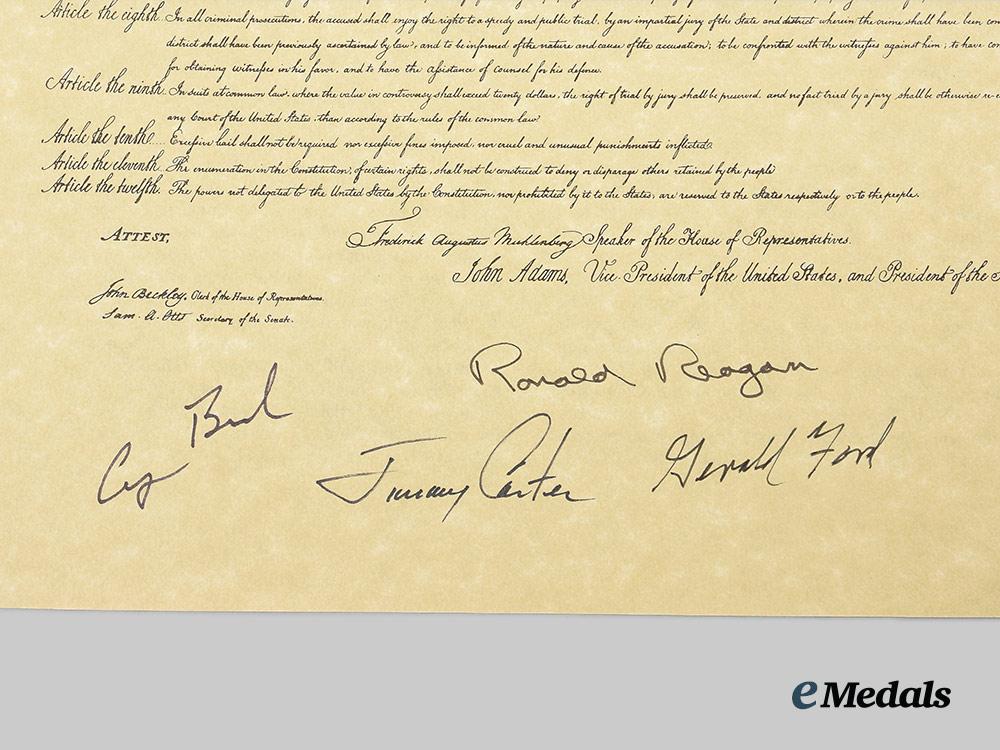 Article the eighth. In all criminal prosecutions, the accused shall enjoy the right to a speedy and public trial, by an impartial jury of the State and district wherein the crime shall have been
district shall have been previously ascertained by law, and to be informed of the nature and cause of the accusation; to be confronted with the witnesses against him; to have
for obtaining witnesses in his favor, and to have the assistance of counsel for his defence.
Article the ninth. In suits at common law, where the value in controversy shall exceed twenty dollars, the right of trial by jury shall be preserved, and no fact tried by a jury, shall be otherwise
any Court of the United States, than according to the rules of the common law.
Article the tenth. Excessive bail shall not be required nor excessive fines imposed, nor cruel and unusual punishments inflicted.
Article the eleventh. The enumeration in the Constitution, of certain rights, shall not be construed to deny or disparage others retained by the people.
Article the twelfth. The powers not delegated to the United States by the Constitution, nor prohibited by it to the States, are reserved to the States respectively or to the people.
ATTEST,
Frederick Augustus Muhlenberg Speaker of the House of Representatives.
John Adams, Vice President of the United States, and President of the
John Beckley, Clerk of the House of Representatives.
Sam. A. Otis Secretary of the Senate.
Ronald Reagan
Jimmy Carter
Gerald Ford
eMedals